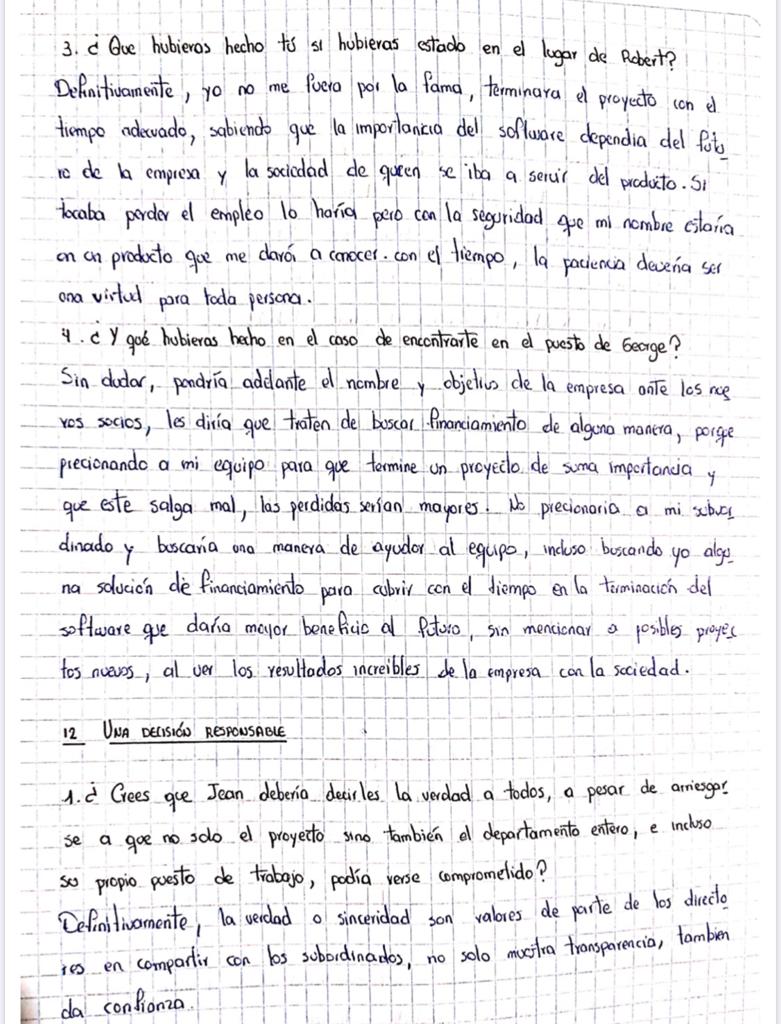 3. ¿ Que hubieras hecho tú si hubieras estado en el lugar de Robert?
Definitivamente, yo no me fuera por la fama, terminara el proyecto con el
tiempo adecuado, sabiendo que la importancia del software dependia del futu
ro de la empresa y la sociedad de queen se iba a servir del producto. Si
tocaba perder el empleo lo haría pero con la seguridad que mi nombre estaría
en un producto que me dará a conocer. con el tiempo, la paciencia devería ser
una virtud para toda persona.
4. ¿ Y qué hubieras hecho en el caso de encontrarte en el puesto de George?
Sin dudar, pondría adelante el nombre y objetivo de la empresa ante los nue
vos socios, les diría que traten de buscar financiamiento de alguna manera, porque
precionando a mi equipo para que termine un proyecto de suma importancia y
que este salga mal, las perdidas serían mayores. No precionaria a mi subor
dinado y buscaría una manera de ayudar al equipo, incluso buscando yo algu
na solución de financiamiento para cubrir con el tiempo en la terminación del
software que daría mayor beneficio al futuro, sin mencionar a posibles proyec
tos nuevos, al ver los resultados increibles de la empresa con la sociedad.
12 UNA DECISIÓN RESPONSABLE
1. ¿ Crees que Jean debería decirles la verdad a todos, a pesar de arriesgar
se a que no solo el proyecto sino también el departamento entero, e incluso
su propio puesto de trabajo, podía verse comprometido?
Definitivamente, la verdad o sinceridad son valores de parte de los directo
res en compartir con los subordinados, no solo muestra transparencia, tambien
da confianza.